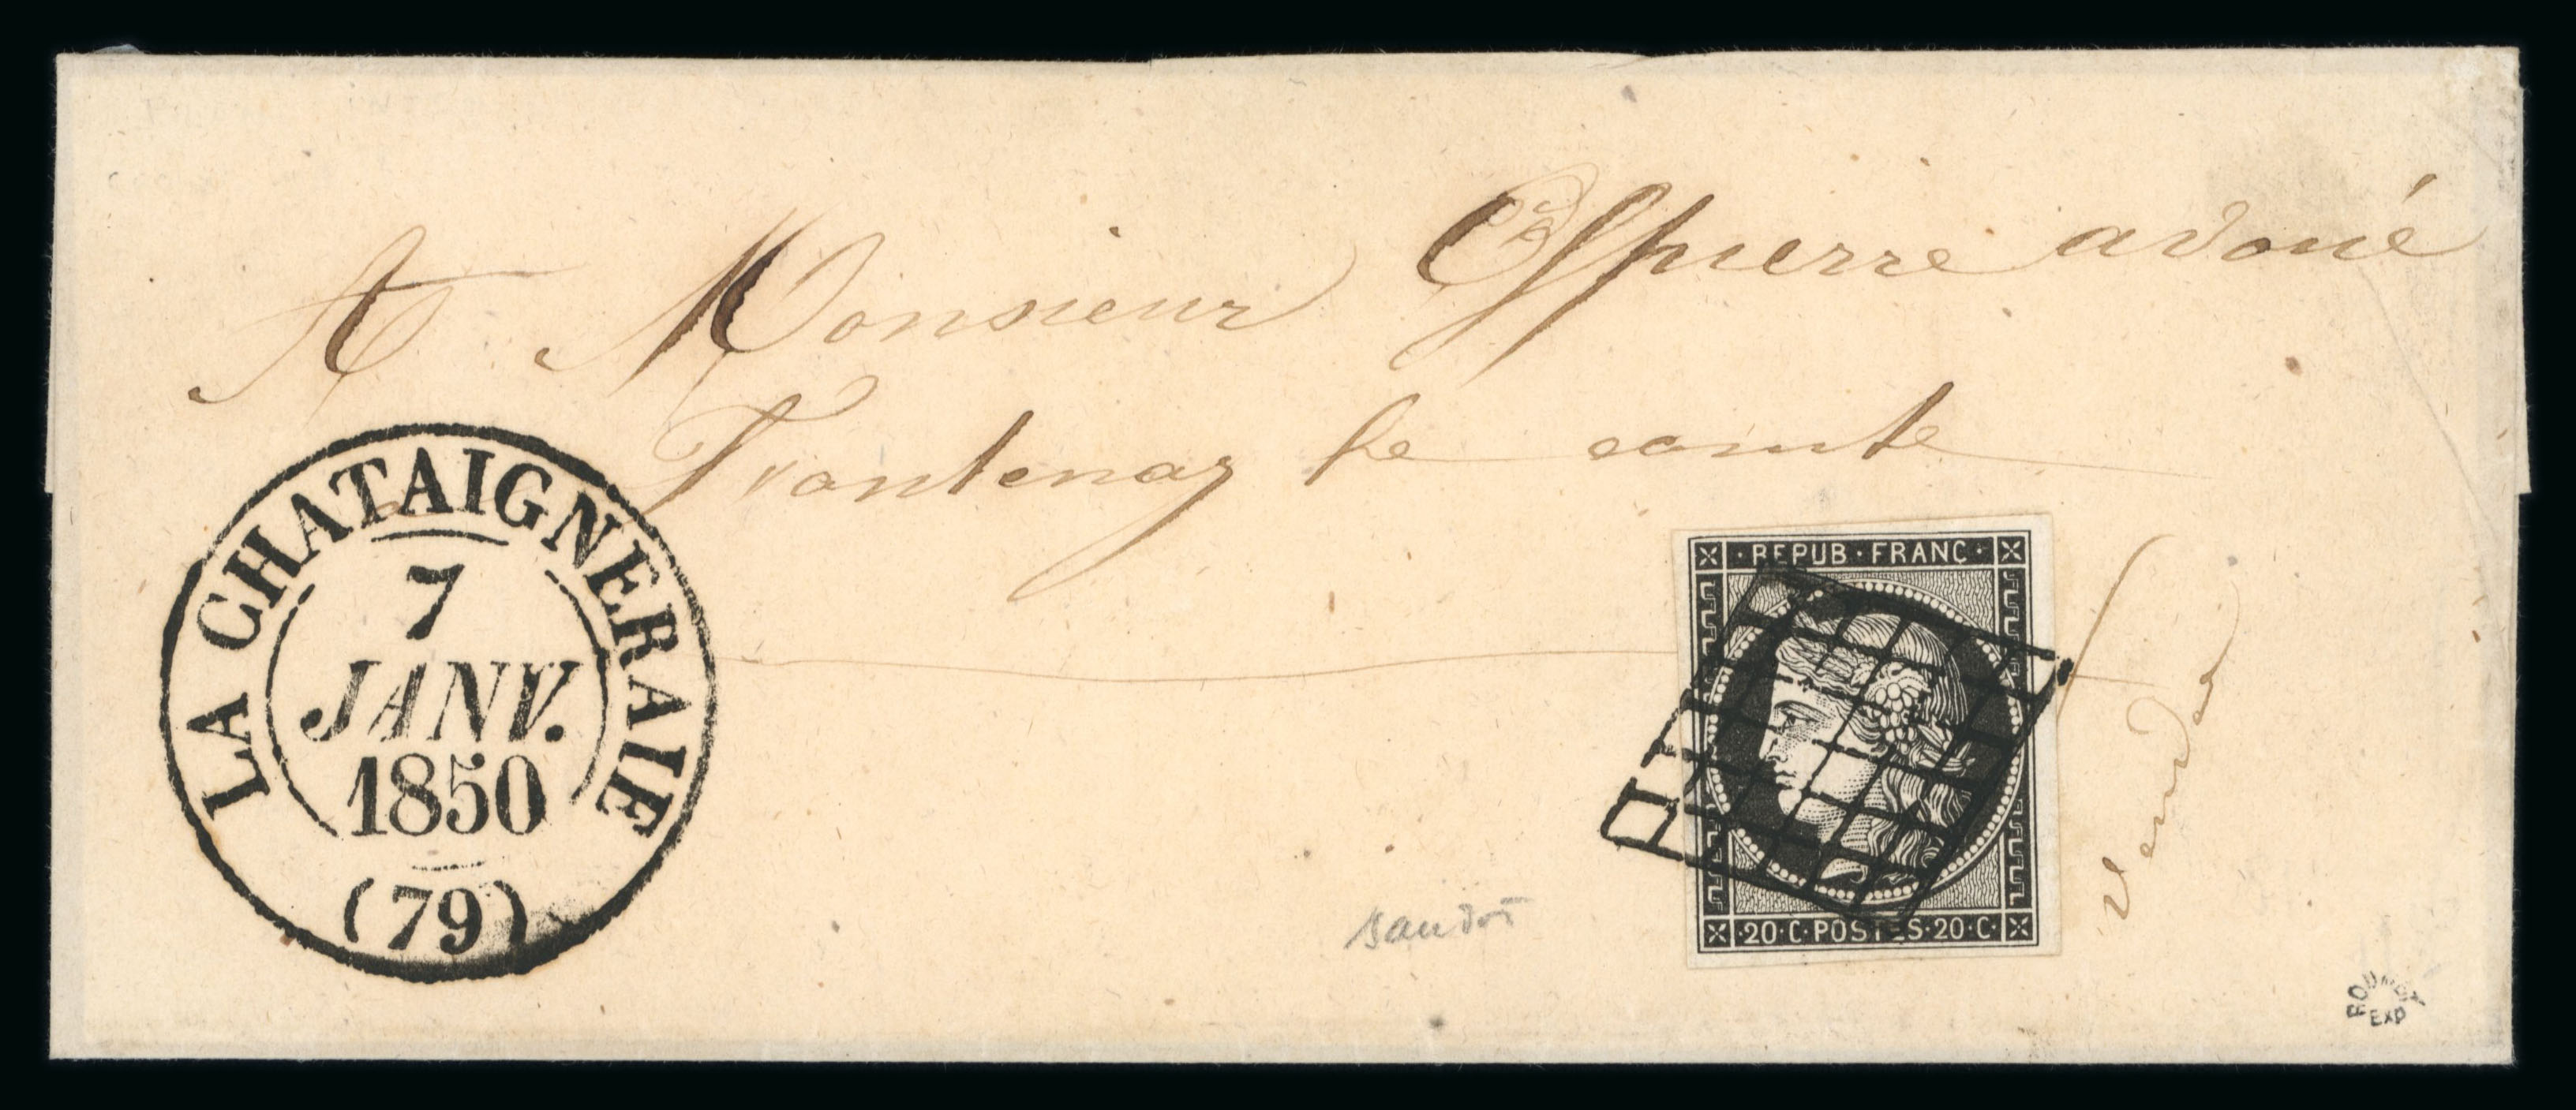 A Monsieur Espierre avoué
Frontenay le comte
LA CHATAIGNERAIE
7
JANV.
1850
(79)
REPUB · FRANC ·
· 20 · C · POSTES · 20 · C ·
vendée
ROUMET
EXP